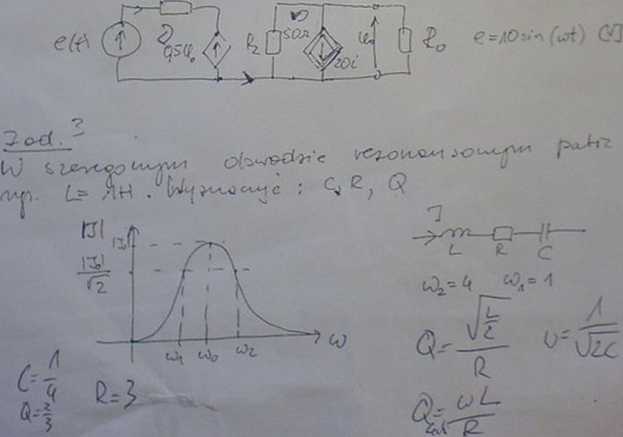 e(t)
0,5u₀
R₂
50Ω
20i
u₀
R₀
e=10sin(ωt) [V]
Zad. 3
W szeregowym obwodzie rezonansowym patrz
rys. L=1H. Wyznaczyć: C, R, Q
|J|
|J₀|
|J₀|/√2
ω₁ ω₀ ω₂ ω
J
L R C
ω₂=4 ω₁=1
Q=√(L/2)/R
υ=1/√2C
Q=ωL/R
C=1/4
Q=2/3
R=3